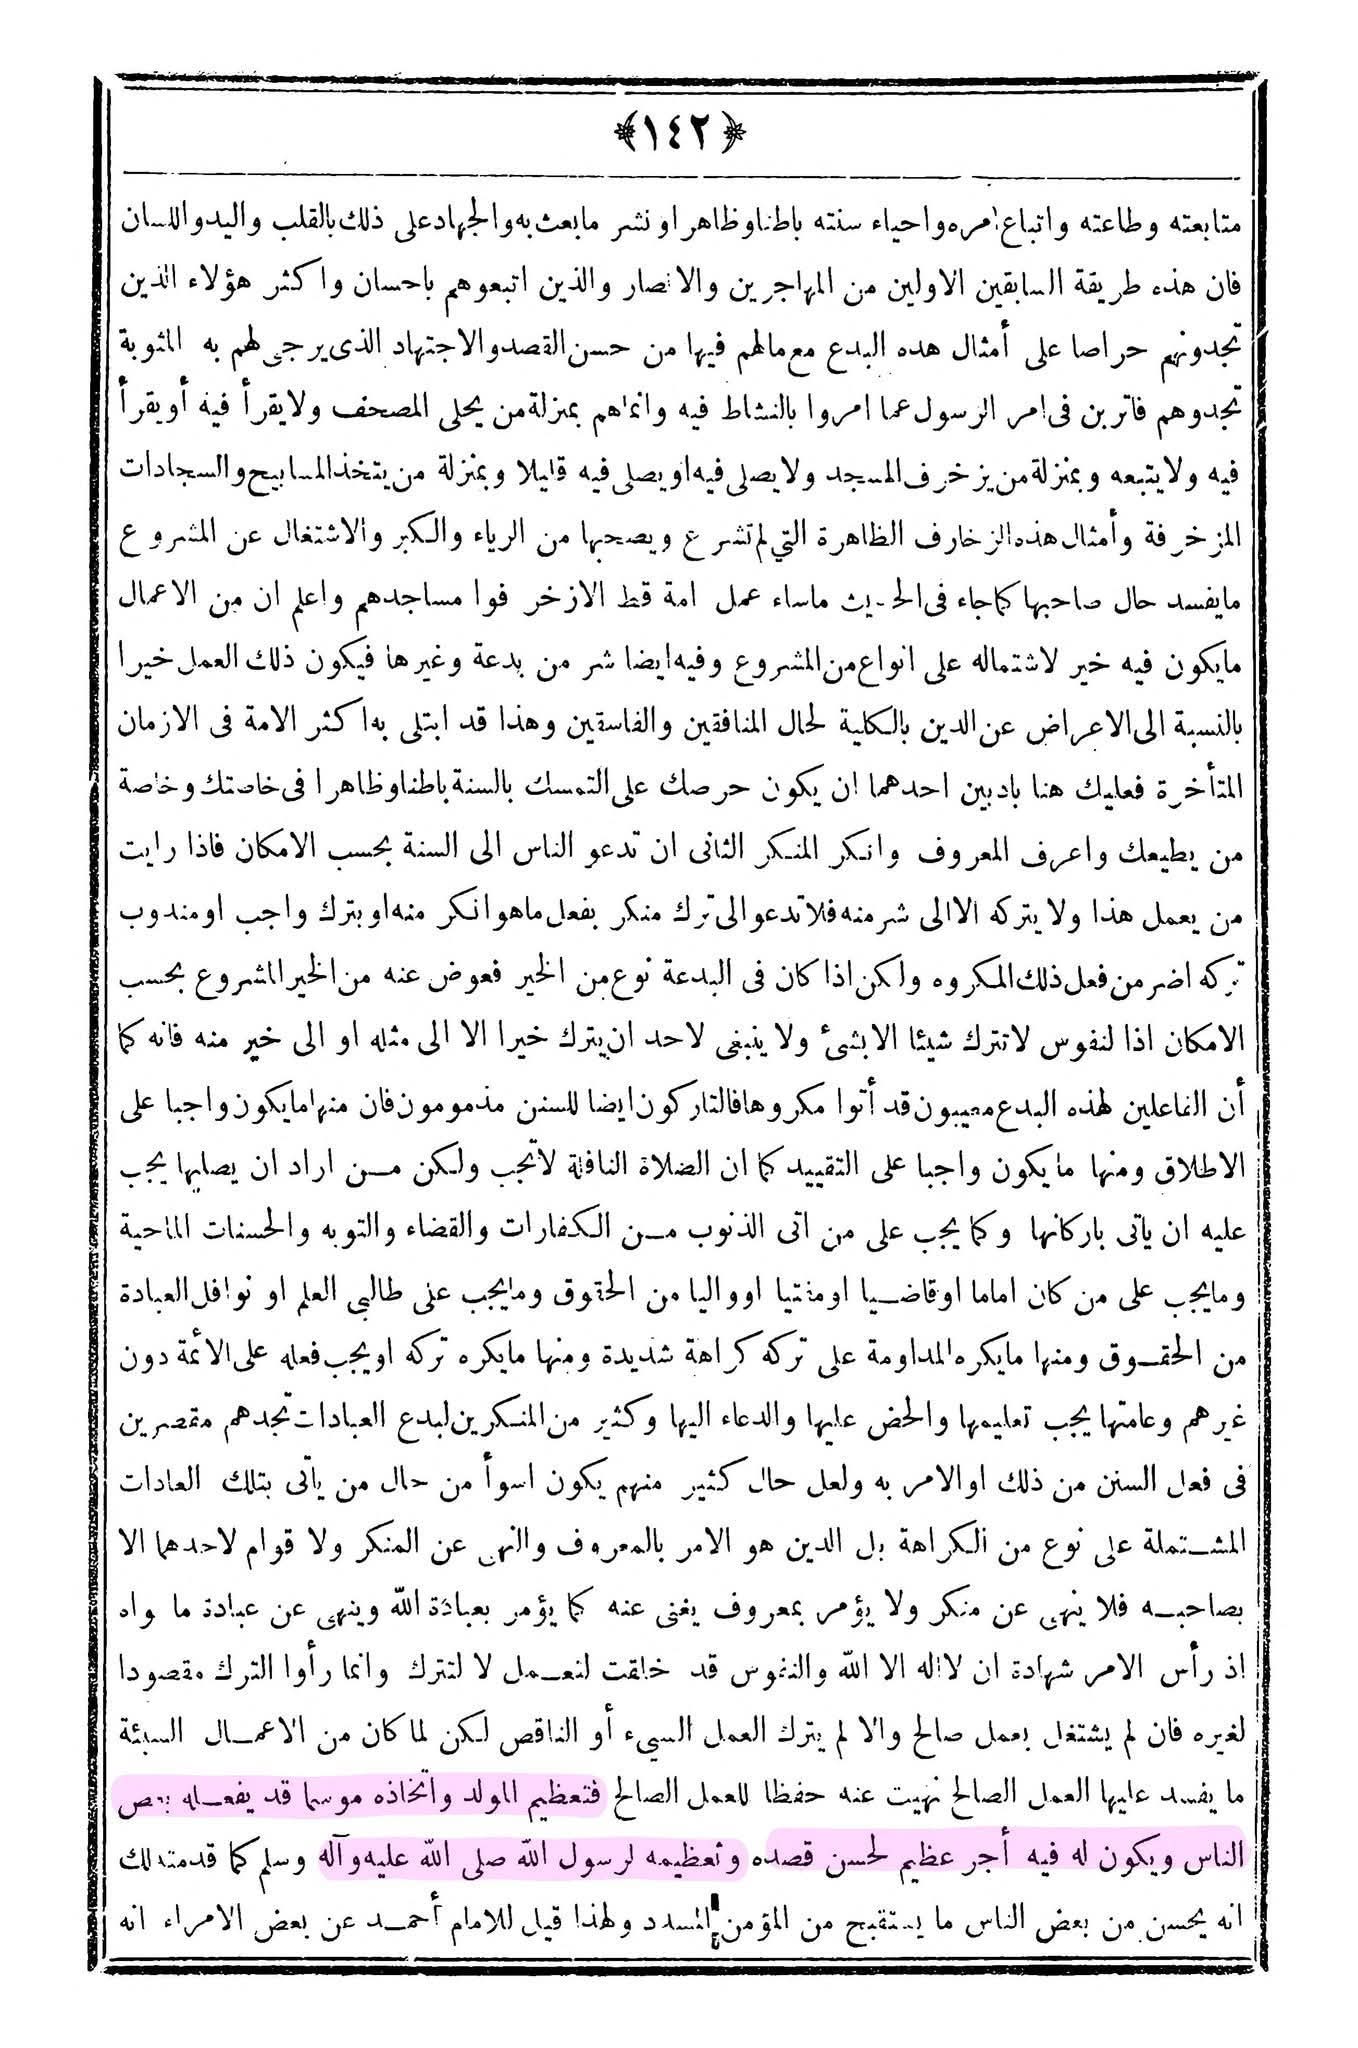 ﴿١٤٢﴾
متابعته وطاعته واتباع امره واحياء سنته باطنا وظاهرا ونشر ما بعث به والجهاد على ذلك بالقلب واليد واللسان
فان هذه طريقة السابقين الاولين من المهاجرين والانصار والذين اتبعوهم باحسان واكثر هؤلاء الذين
تجدونهم حراصا على أمثال هده البدع مع مالهم فيها من حسن القصد والاجتهاد الذى يرجى لهم به المثوبة
تجدوهم فاترين فى امر الرسول عما امروا بالنشاط فيه وانما هم بمنزلة من يحلى المصحف ولا يقرأ فيه أو يقرأ
فيه ولا يتبعه وبمنزلة من يزخرف المسجد ولا يصلى فيه او يصلى فيه قليلا وبمنزلة من يتخذ المسابيح والسجادات
المزخرفة وأمثال هذه الزخارف الظاهرة التي لم تشرع ويصحبها من الرياء والكبر والاشتغال عن المشروع
ما يفسد حال صاحبها كما جاء فى الحديث ماساء عمل امة قط الا زخرفوا مساجدهم واعلم ان من الاعمال
ما يكون فيه خير لاشتماله على انواع من المشروع وفيه ايضا شر من بدعة وغيرها فيكون ذلك العمل خيرا
بالنسبة الى الاعراض عن الدين بالكلية لحال المنافقين والفاسقين وهذا قد ابتلى به اكثر الامة فى الازمان
المتأخرة فعليك هنا بادبين احدهما ان يكون حرصك على التمسك بالسنة باطنا وظاهرا فى خاصتك وخاصة
من يطيعك واعرف المعروف وانكر المنكر الثانى ان تدعو الناس الى السنة بحسب الامكان فاذا رايت
من يعمل هذا ولا يتركه الا الى شر منه فلا تدعو الى ترك منكر بفعل ما هو انكر منه او بترك واجب او مندوب
تركه اضر من فعل ذلك المكروه ولكن اذا كان فى البدعة نوع من الخير فعوض عنه من الخير المشروع بحسب
الامكان اذا لنفوس لا تترك شيئا الا بشئ ولا ينبغى لاحد ان يترك خيرا الا الى مثله او الى خير منه فانه كما
أن الفاعلين لهذه البدع معيبون قد أتوا مكروها فالتاركون ايضا للسنن مذمومون فان منها ما يكون واجبا على
الاطلاق ومنها ما يكون واجبا على التقييد كما ان الصلاة النافلة لا تجب ولكن من اراد ان يصليها يجب
عليه ان ياتى باركانها وكما يجب على من اتى الذنوب من الكفارات والقضاء والتوبه والحسنات الماحية
وما يجب على من كان اماما او قاضيا او مفتيا او واليا من الحقوق وما يجب على طالبى العلم او نوافل العبادة
من الحقوق ومنها ما يكره المداومة على تركه كراهة شديدة ومنها ما يكره تركه او يجب فعله على الائمة دون
غيرهم وعامتها يجب تعليمها والحض عليها والدعاء اليها وكثير من المنكرين لبدع العبادات تجدهم مقصرين
فى فعل السنن من ذلك او الامر به ولعل حال كثير منهم يكون اسوأ من حال من ياتى بتلك العادات
المشتملة على نوع من الكراهة بل الدين هو الامر بالمعروف والنهى عن المنكر ولا قوام لاحدهما الا
بصاحبه فلا ينهى عن منكر ولا يؤمر بمعروف يغنى عنه كما يؤمر بعبادة الله وينهى عن عبادة ما واه
اذ رأس الامر شهادة ان لا اله الا الله والنفوس قد خلقت لتعمل لا لتترك وانما رأوا الترك مقصودا
لغيره فان لم يشتغل بعمل صالح والا لم يترك العمل السيء أو الناقص لكن لما كان من الاعمال السيئة
ما يفسد عليها العمل الصالح نهيت عنه حفظا للعمل الصالح فتعظيم المولد واتخاذه موسما قد يفعله بعض
الناس ويكون له فيه أجر عظيم لحسن قصده وتعظيمه لرسول الله صلى الله عليه وآله وسلم كما قدمته لك
انه يحسن من بعض الناس ما يستقبح من المؤمن المسدد ولهذا قيل للامام أحمد عن بعض الامراء انه